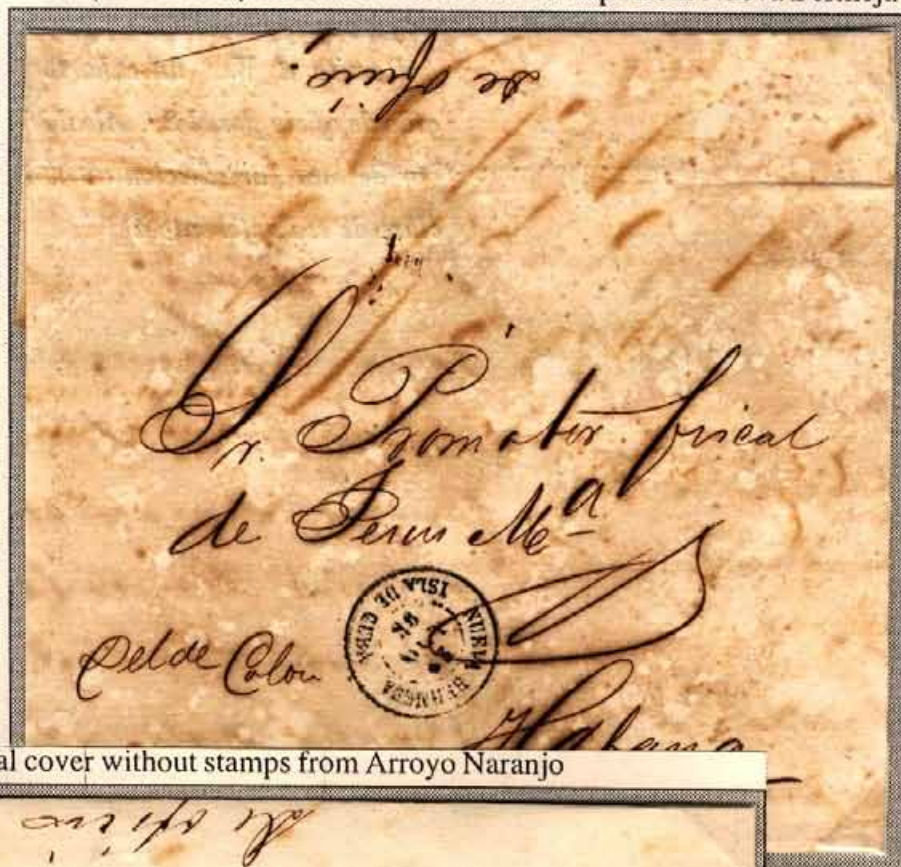 de oficio.
Sr. Promotor fiscal
de Jesus Mª
Del de Colon
NUEVA BERMEJA
ISLA DE CUBA
Habana
al cover without stamps from Arroyo Naranjo
de oficio